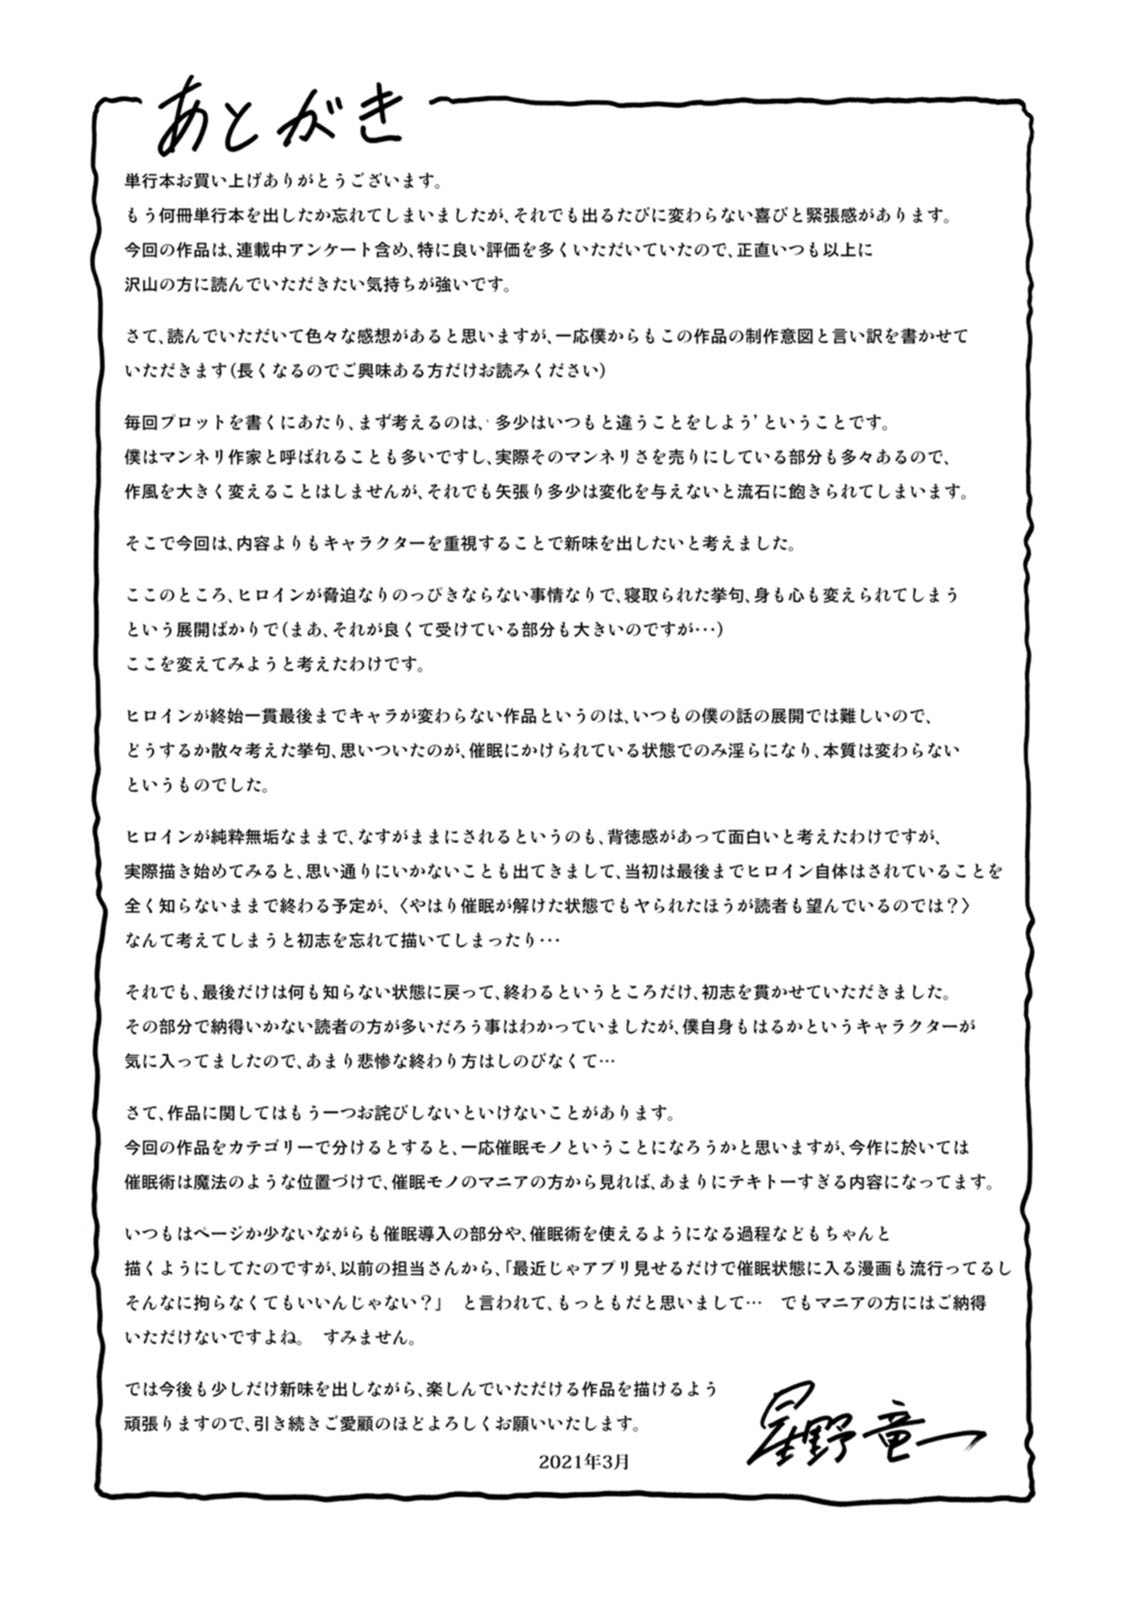 あとがき
単行本お買い上げありがとうございます。
もう何冊単行本を出したか忘れてしまいましたが、それでも出るたびに変わらない喜びと緊張感があります。
今回の作品は、連載中アンケート含め、特に良い評価を多くいただいていたので、正直いつも以上に
沢山の方に読んでいただきたい気持ちが強いです。
さて、読んでいただいて色々な感想があると思いますが、一応僕からもこの作品の制作意図と言い訳を書かせて
いただきます(長くなるのでご興味ある方だけお読みください)
毎回プロットを書くにあたり、まず考えるのは、‘多少はいつもと違うことをしよう’ということです。
僕はマンネリ作家と呼ばれることも多いですし、実際そのマンネリさを売りにしている部分も多々あるので、
作風を大きく変えることはしませんが、それでも矢張り多少は変化を与えないと流石に飽きられてしまいます。
そこで今回は、内容よりもキャラクターを重視することで新味を出したいと考えました。
ここのところ、ヒロインが脅迫なりのっぴきならない事情なりで、寝取られた挙句、身も心も変えられてしまう
という展開ばかりで(まあ、それが良くて受けている部分も大きいのですが・・・)
ここを変えてみようと考えたわけです。
ヒロインが終始一貫最後までキャラが変わらない作品というのは、いつもの僕の話の展開では難しいので、
どうするか散々考えた挙句、思いついたのが、催眠にかけられている状態でのみ淫らになり、本質は変わらない
というものでした。
ヒロインが純粋無垢なままで、なすがままにされるというのも、背徳感があって面白いと考えたわけですが、
実際描き始めてみると、思い通りにいかないことも出てきまして、当初は最後までヒロイン自体はされていることを
全く知らないままで終わる予定が、〈やはり催眠が解けた状態でもヤられたほうが読者も望んでいるのでは？〉
なんて考えてしまうと初志を忘れて描いてしまったり・・・
それでも、最後だけは何も知らない状態に戻って、終わるというところだけ、初志を貫かせていただきました。
その部分で納得いかない読者の方が多いだろう事はわかっていましたが、僕自身もはるかというキャラクターが
気に入ってましたので、あまり悲惨な終わり方はしのびなくて…
さて、作品に関してはもう一つお詫びしないといけないことがあります。
今回の作品をカテゴリーで分けるとすると、一応催眠モノということになろうかと思いますが、今作に於いては
催眠術は魔法のような位置づけで、催眠モノのマニアの方から見れば、あまりにテキトーすぎる内容になってます。
いつもはページか少ないながらも催眠導入の部分や、催眠術を使えるようになる過程などもちゃんと
描くようにしてたのですが、以前の担当さんから、「最近じゃアプリ見せるだけで催眠状態に入る漫画も流行ってるし
そんなに拘らなくてもいいんじゃない？」 と言われて、もっともだと思いまして… でもマニアの方にはご納得
いただけないですよね。 すみません。
では今後も少しだけ新味を出しながら、楽しんでいただける作品を描けるよう
頑張りますので、引き続きご愛顧のほどよろしくお願いいたします。
2021年3月
星野竜一